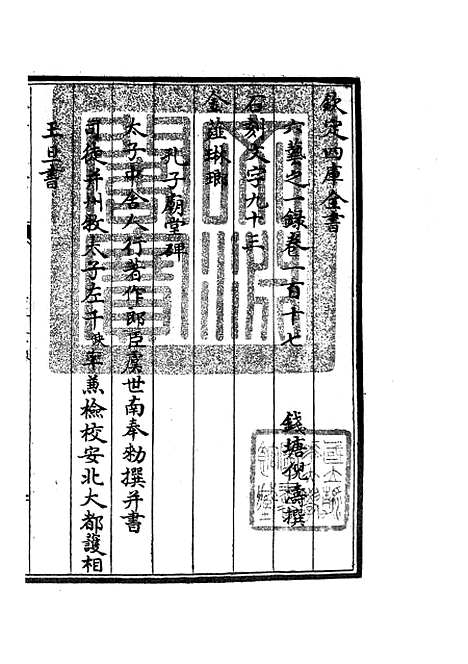 欽定四庫全書
六藝之一錄卷一百十七
錢塘倪濤撰
石刻文字九十三
金薤琳琅
孔子廟堂碑
太子中舍人行著作郎臣虞世南奉勑撰并書
司徒并州牧太子左千牛率兼檢校安北大都護相
王旦書